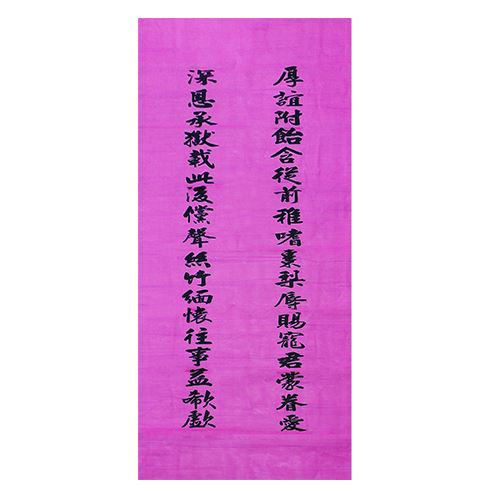 厚誼附飴含從前稚嗜棗梨辱賜寵君蒙眷愛
深恩承獄載此後儻聲絲竹緬懷往事益欷歔